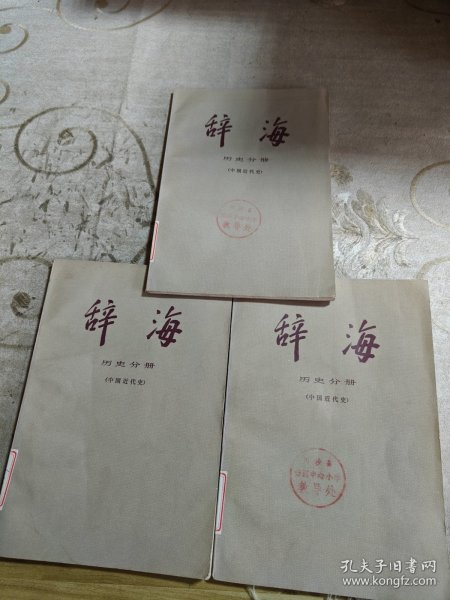 辞海
历史分册
(中国近代史)
教导处
辞海
历史分册
(中国近代史)
辞海
历史分册
(中国近代史)
教导处
孔夫子旧书网
www.kongfz.com